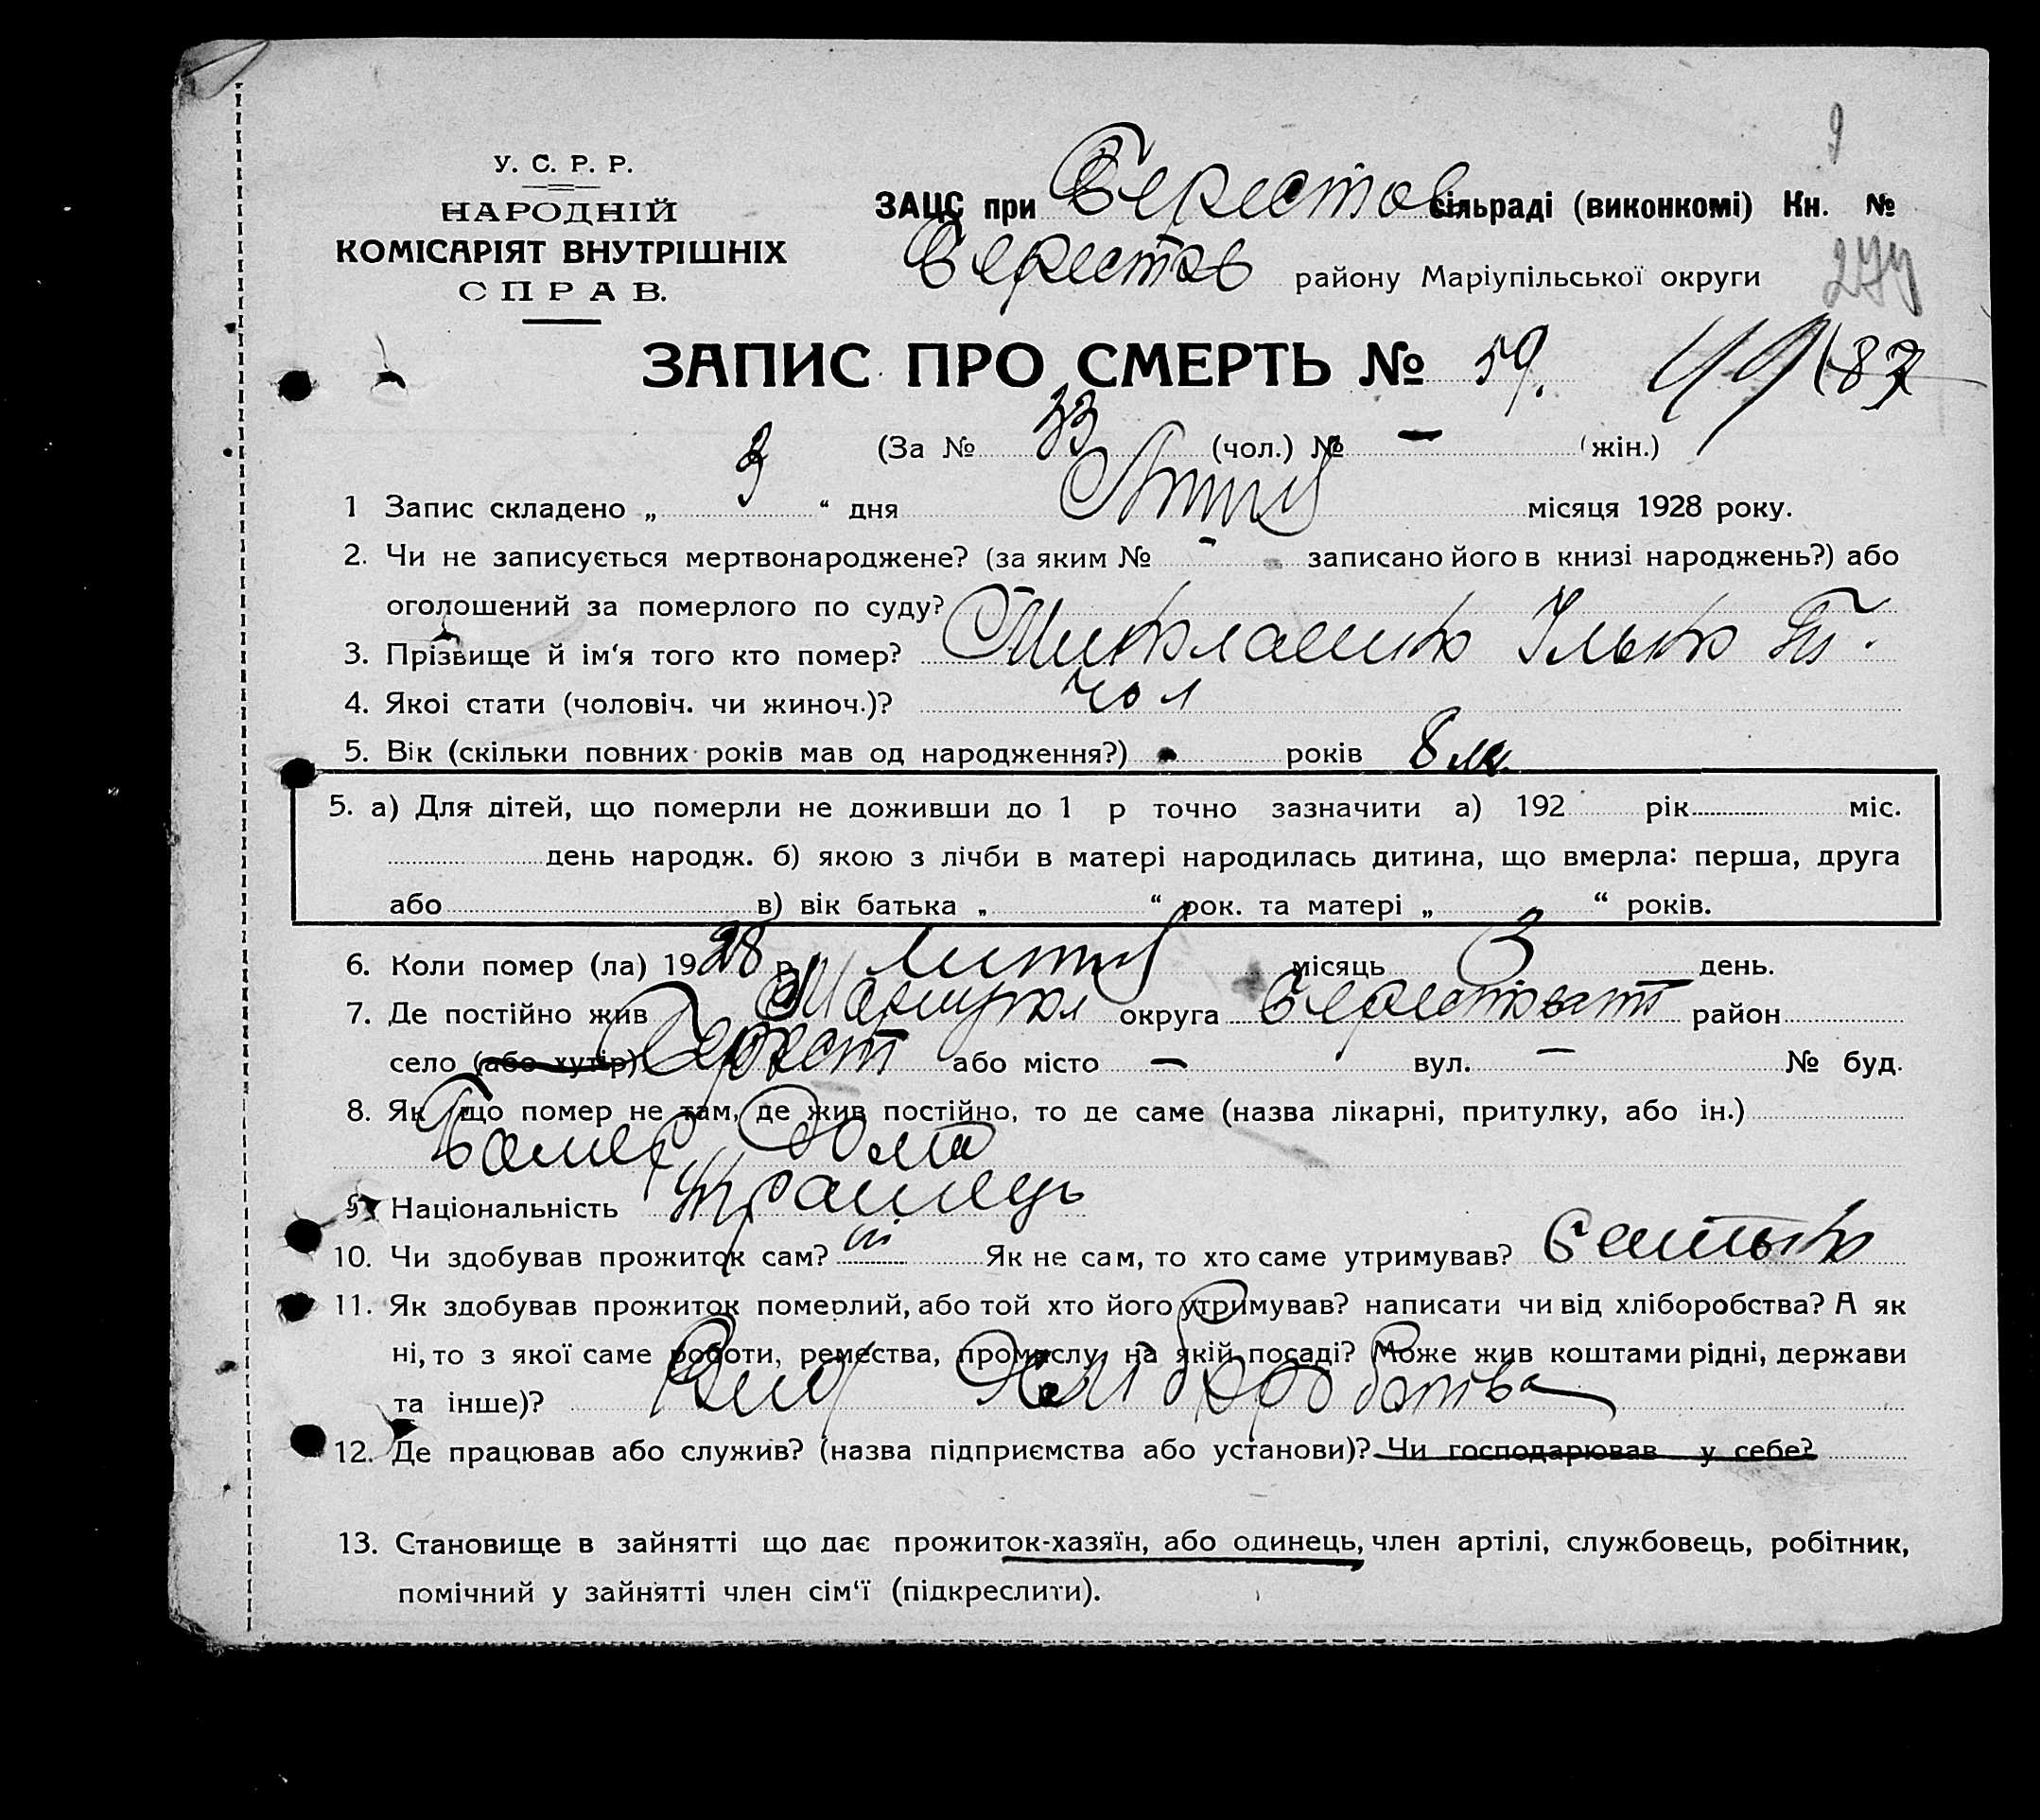 9
У. С. Р. Р.
НАРОДНІЙ
КОМІСАРІЯТ ВНУТРІШНІХ
СПРАВ.
ЗАЦС при Берестов сільраді (виконкомі) Кн. №
Берестов району Маріупільської округи
ЗАПИС ПРО СМЕРТЬ № 59.
(За № 33 (чол.) № – (жін.)
1 Запис складено „ 3 “ дня місяця 1928 року.
2. Чи не записується мертвонароджене? (за яким № - записано його в книзі народжень?) або
оголошений за померлого по суду?
3. Прізвище й ім‘я того кто помер? Ілько
4. Якоі стати (чоловіч. чи жиноч.)? чол
5. Вік (скільки повних років мав од народження?) років 8 м.
5. а) Для дітей, що померли не доживши до 1 р точно зазначити а) 192 рік міс.
день народж. б) якою з лічби в матері народилась дитина, що вмерла: перша, друга
або в) вік батька „ “ рок. та матері „ “ років.
6. Коли помер (ла) 1928 р. місяць 3 день.
7. Де постійно жив Маріупіл округа район
село (або хутір) Берест або місто – вул. – № буд.
8. Як що помер не там, де жив постійно, то де саме (назва лікарні, притулку, або ін.)
Помер дома
9. Національність
10. Чи здобував прожиток сам? ні Як не сам, то хто саме утримував? батько
11. Як здобував прожиток померлий, або той хто його утримував? написати чи від хліборобства? А як
ні, то з якої саме роботи, ремества, промислу, на якій посаді? Може жив коштами рідні, держави
та інше)? Від Хліборобства
12. Де працював або служив? (назва підприємства або установи)? Чи господарював у себе?
13. Становище в зайнятті що дає прожиток-хазяїн, або одинець, член артілі, службовець, робітник,
помічний у зайнятті член сім‘ї (підкреслити).